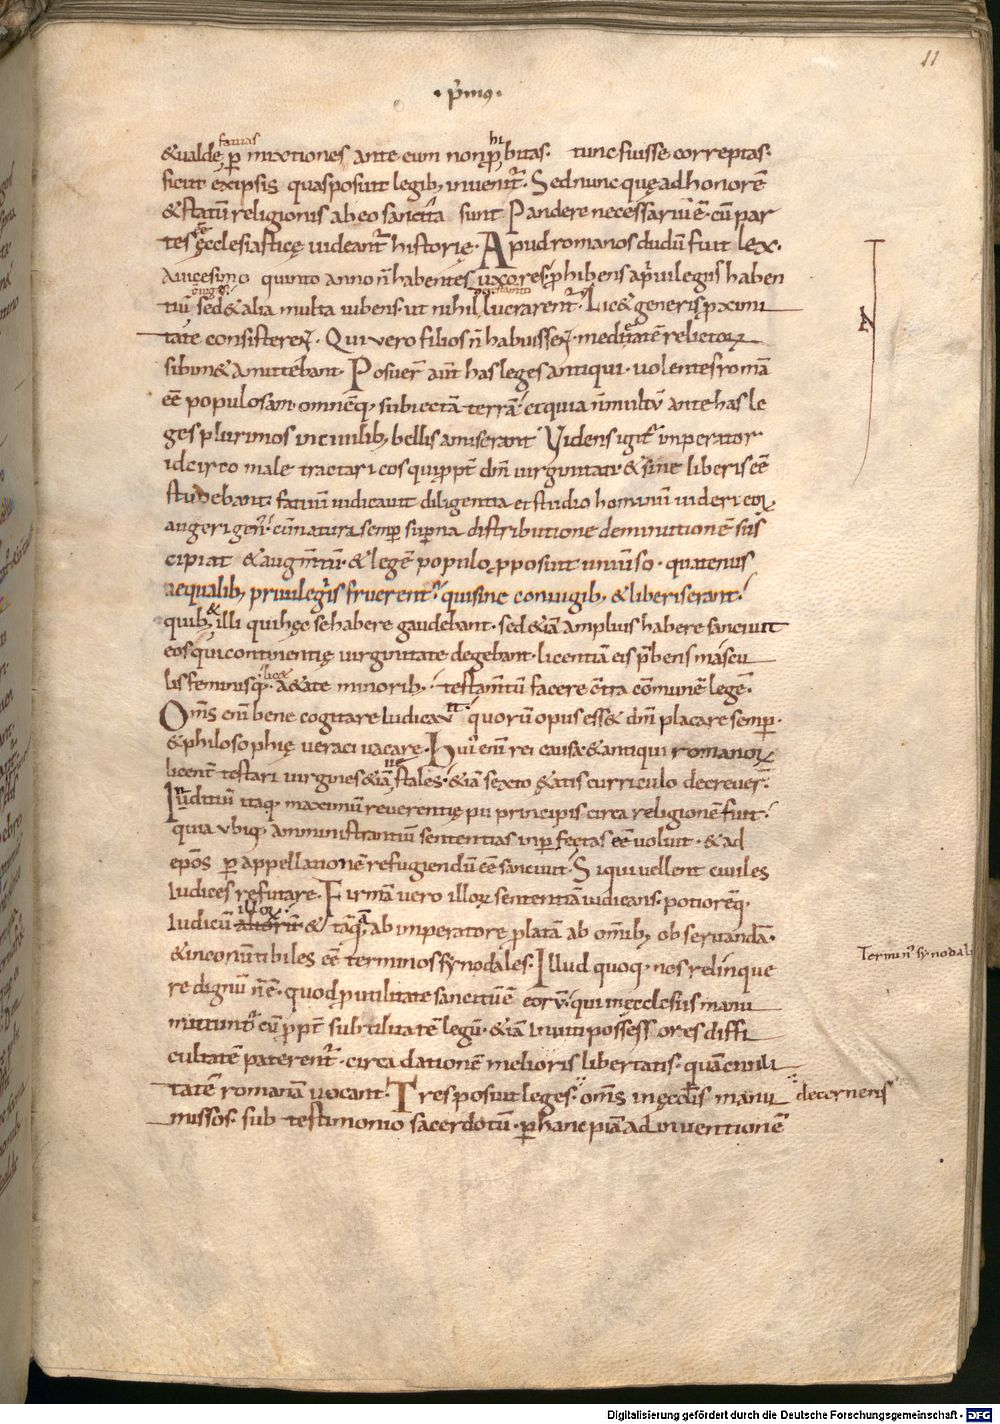 11
· p̄mus ·
&ualdę p̱ mixtiones ante eum non p̱bitas. tunc fuisse correptas.
fatuas
hi
sicut ex ipsis quas posuit legib; inuenit᷑. Sed nunc quę ad honorē
& statū religionis ab eo sancita sunt Pandere necessariū ē. cū par
tes ęcclesiasticę uideant᷑ historię. Apud romanos dudū fuit lex.
A uicesimo quinto anno n̄ habentes uxores. p̱hibens a p̱uilegiis haben
tiū sed & alia multa iubens. ut nihil lucrarent᷑. Lic& generis p̱ximi
tate consisterent. Qui uero filios n̄ habuissent. medi&atē relictorꝝ
sibim& amittebant. Posuer̄ aut̄ has leges antiqui. uolentes romā
eē populosam. omnēq; subiectā terrā. et quia n̄ multū ante has le
ges plurimos in ciuilib; bellis amiserant Videns igit᷑ imperator
idcirco male tractari eos qui p̱pt̄ dm̄ uirginitati & sine liberis eē
studebant. fatuū iudicauit diligentia et studio hominū uideri eoꝝ
augeri gen᷑. cū natura semp̱ superna distributione deminutionē sus
cipiat & augm̄tū. & legē populo p̱posuit uniuerso. quatenus
aequalib; priuilegiis fruerent᷑. qui sine coniugib; & liberis erant.
quib; & illi qui hęc se habere gaudebant. sed & iā amplius habere sanciuit
eos qui continentię uirginitate degebant. licentiā eis p̄bens mascu
lis feminisq; lic& a&ate minorib;. testam̄tū facere c̄tra cōmunē legē.
Om̄s eni bene cogitare Iudicauit quorū opus ess& dm̄ placare semp̱.
& philosophię ueraci uacare. Hui᷑ eni rei causa & antiqui romanorꝝ
licent᷑ testari uirgines &iā uestales. &iā sexto ętatis curriculo decreuer̄.
Inditiū itaq; maximū reuerentię pii principis circa religionē fuit.
quia ubiq; amministrantiū sententias inp̱fectas eē uoluit. & ad
ep̄os p̱ appellationē refugiendū eē sanciuit. Si qui uellent ciuiles
Iudices refutare. Firmā uero illorꝝ sententiā iudicans. potiorēq;
Iudiciū aliorū & tāqua ab imperatore p̱latā ab om̄ib; obseruandā.
illorꝝ
& inconuūtibiles eē terminos synodales. Illud quoq; nos relinque
Termin᷑ synodali
re dignū n̄ ē. quod p̱ utilitate sancitū ē eorū. qui in ecclesiis manu
mittunt᷑ cū p̱pt̄ subtilitatē legū. &iā inuiti possessores diffi
cultatē paterent᷑. circa dationē melioris libertatis. quā ciuili
tatē romanā uocant. Tres posuit leges. om̄s in ęccl̄iis manu
decernens
missos. sub testimonio sacerdotū. p̱ hanc piā adinuentionē
Digitalisierung gefördert durch die Deutsche Forschungsgemeinschaft - DFG